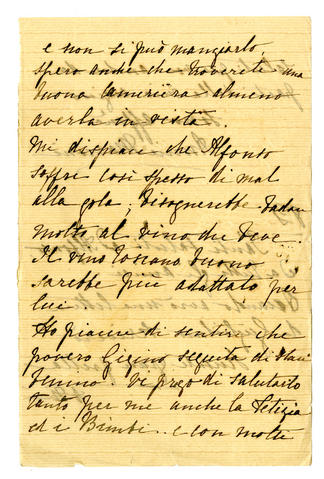 e non si può mangiarlo.
spero anche che troverete una
buona cameriera almeno
averla in vista.
Mi dispiace che Alfonso
soffre così spesso di mal
alla gola; bisognerebbe badare
molto al vino che beve.
Il vino toscano buono
sarebbe più adattato per
lui
Ho piacere di sentire che
povero Gigino seguita di star
benino vi prego di salutarlo
tanto per me anche la Letizia
ed i Bimbi.. e con molti